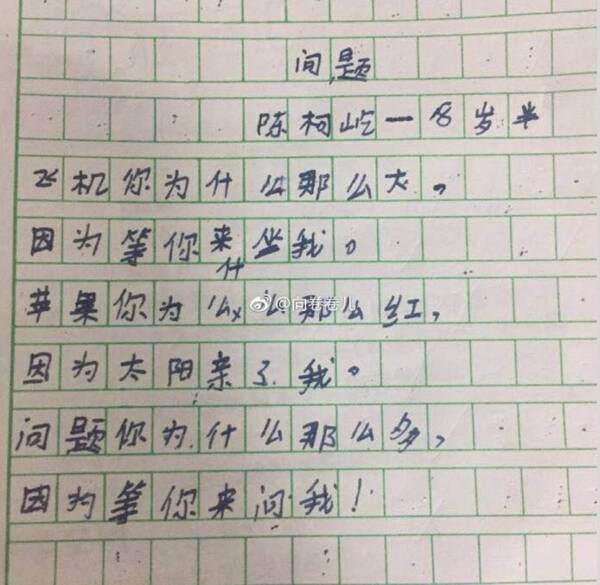 问题
陈柯屹一8岁半
飞机你为什么那么大。
因为等你来坐我。
苹果你为什么那么红,
因为太阳亲了我。
问题你为什么那么多,
因为等你来问我!
@向卷卷儿